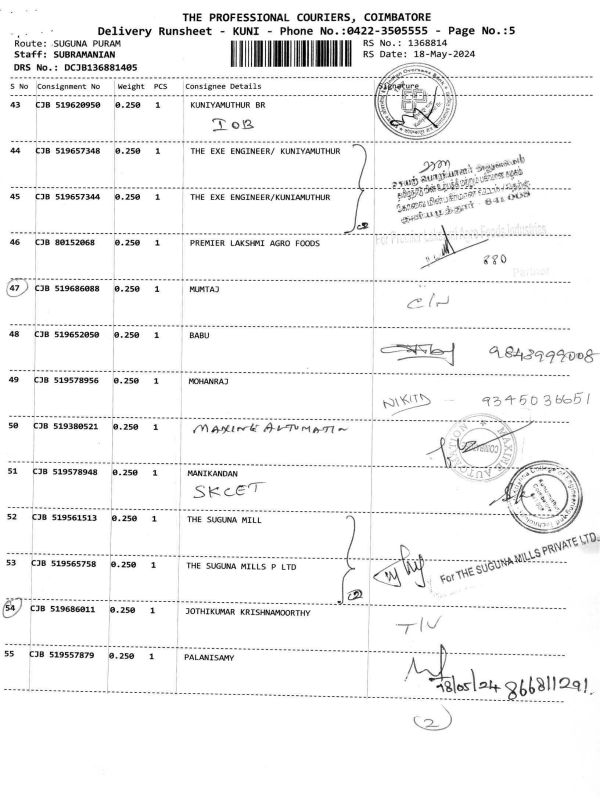 THE PROFESSIONAL COURIERS, COIMBATORE
Delivery Runsheet - KUNI - Phone No.:0422-3505555 - Page No.:5
Route: SUGUNA PURAM RS No.: 1368814
Staff: SUBRAMANIAN RS Date: 18-May-2024
DRS No.: DCJB136881405
S No Consignment No Weight PCS Consignee Details Signature
43 CJB 519620950 0.250 1 KUNIYAMUTHUR BR
IOB
44 CJB 519657348 0.250 1 THE EXE ENGINEER/ KUNIYAMUTHUR
45 CJB 519657344 0.250 1 THE EXE ENGINEER/KUNIAMUTHUR
(2)
குனியமுத்தூர் - 641 008
46 CJB 80152068 0.250 1 PREMIER LAKSHMI AGRO FOODS
For Premier Lakshmi Agro Foods Industries
880
Partner
47 CJB 519686088 0.250 1 MUMTAJ
C/N
48 CJB 519652050 0.250 1 BABU
9843999008
49 CJB 519578956 0.250 1 MOHANRAJ
NIKITD - 9345036651
50 CJB 519380521 0.250 1 MAXINE AUTOMATION
MAXINE AUTOMATION
51 CJB 519578948 0.250 1 MANIKANDAN
SKCET
52 CJB 519561513 0.250 1 THE SUGUNA MILL
53 CJB 519565758 0.250 1 THE SUGUNA MILLS P LTD
(2)
For THE SUGUNA MILLS PRIVATE LTD.
54 CJB 519686011 0.250 1 JOTHIKUMAR KRISHNAMOORTHY
T/V
55 CJB 519557879 0.250 1 PALANISAMY
18/05/24 866811291.
(2)